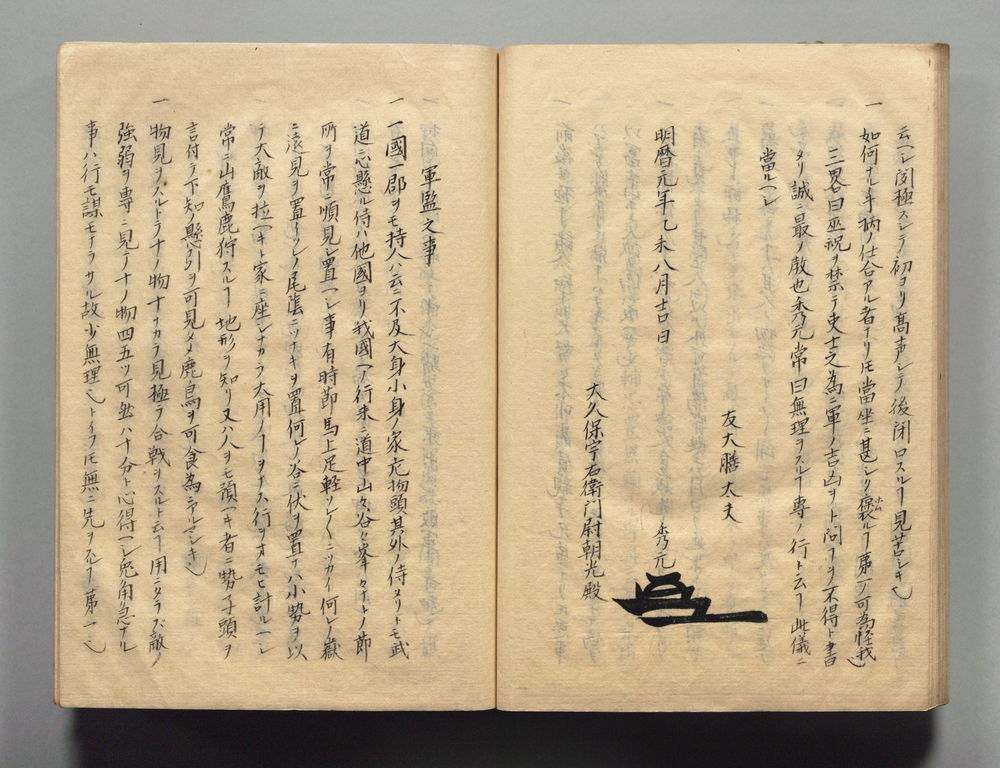 云ヘシ図極スシテ初ヨリ高声シテ後閉口スルヿ見苦シキ也
一 如何ナル手柄ノ仕合アル者ナリ𪜈當坐ニ甚シク褒ルヿ第一ノ可為怪我也
三畧曰巫祝ヲ禁テ吏士之為ニ軍ノ吉凶ヲト問フヿヲ不得ト書
タリ誠ニ最ノ敵也秀元常曰無理ヲスルヿ専ノ行ト云ヿ此儀ニ
當ルヘシ
友大膳太夫
明暦元年乙未八月吉日 秀元
大久保宇右衛門尉朝光殿
軍監之事
一 一國一郡ヲモ持人ハ云ニ不及大身小身ノ家老物頭其外ノ侍タリトモ武
道ニ心懸ル侍ハ他國ヨリ我國ヘノ行来ニ道中山々谷々峯々ナトノ節
所ヲ常ニ順見シ置ヘシ事有時節馬上足軽ソレ〱ニツカイ何レノ嶽
ニ遠見ヲ置イツレノ尾陰ニツナキヲ置何レノ谷ニ伏ヲ置テハ小勢ヲ以
テ大敵ヲ拉ヘキト家ニ座シナカラ大用ノヿヲナス行ヲオモヒ計ルヘシ
常ニ山鷹鹿狩スルヿ 地形ヲ知リ又ハ人ヲモ預ヘキ者ニ勢子頭ヲ
言付テ下知ノ懸引ヲ可見メ鹿鳥ヲ可食為ニアルマシキ也
一 物見ヲスルトテ十ノ物十ナカラ見極テ合戦ヲスルト云ヿ用ニタラズ敵ノ
強弱ヲ専ニ見テ十ノ物四五ツ可然ハ十分ト心得ヘシ兎角急ナル
事ハ行モ謀モナラサル故少無理也トイフ𪜈無ニ先ヲスルヿ第一也